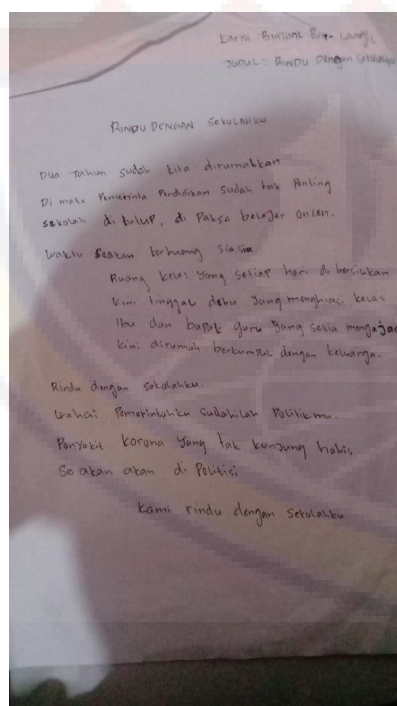 Karya Bintang
JUDUL : RINDU Dengan Sekolahku
RINDU DENGAN SEKOLAHKU
Dua Tahun sudah kita dirumahkan
Di mata Pemerinta Pendidikan sudah tak Penting
sekolah di tutup, di Paksa belajar onlen.
Waktu seakan terbuang siasia.
Ruang kelas yang setiap hari di bersihkan
kini tinggal debu yang menghiasi kelas
Ibu dan bapak guru yang setia mengajar
kini dirumah berkumpul dengan keluarga.
Rindu dengan sekolahku.
Wahai Pemerintahku sudahilah Politikmu.
Penyakit korona yang tak kunjung habis
Se akan akan di Politisi
Kami rindu dengan sekolahku